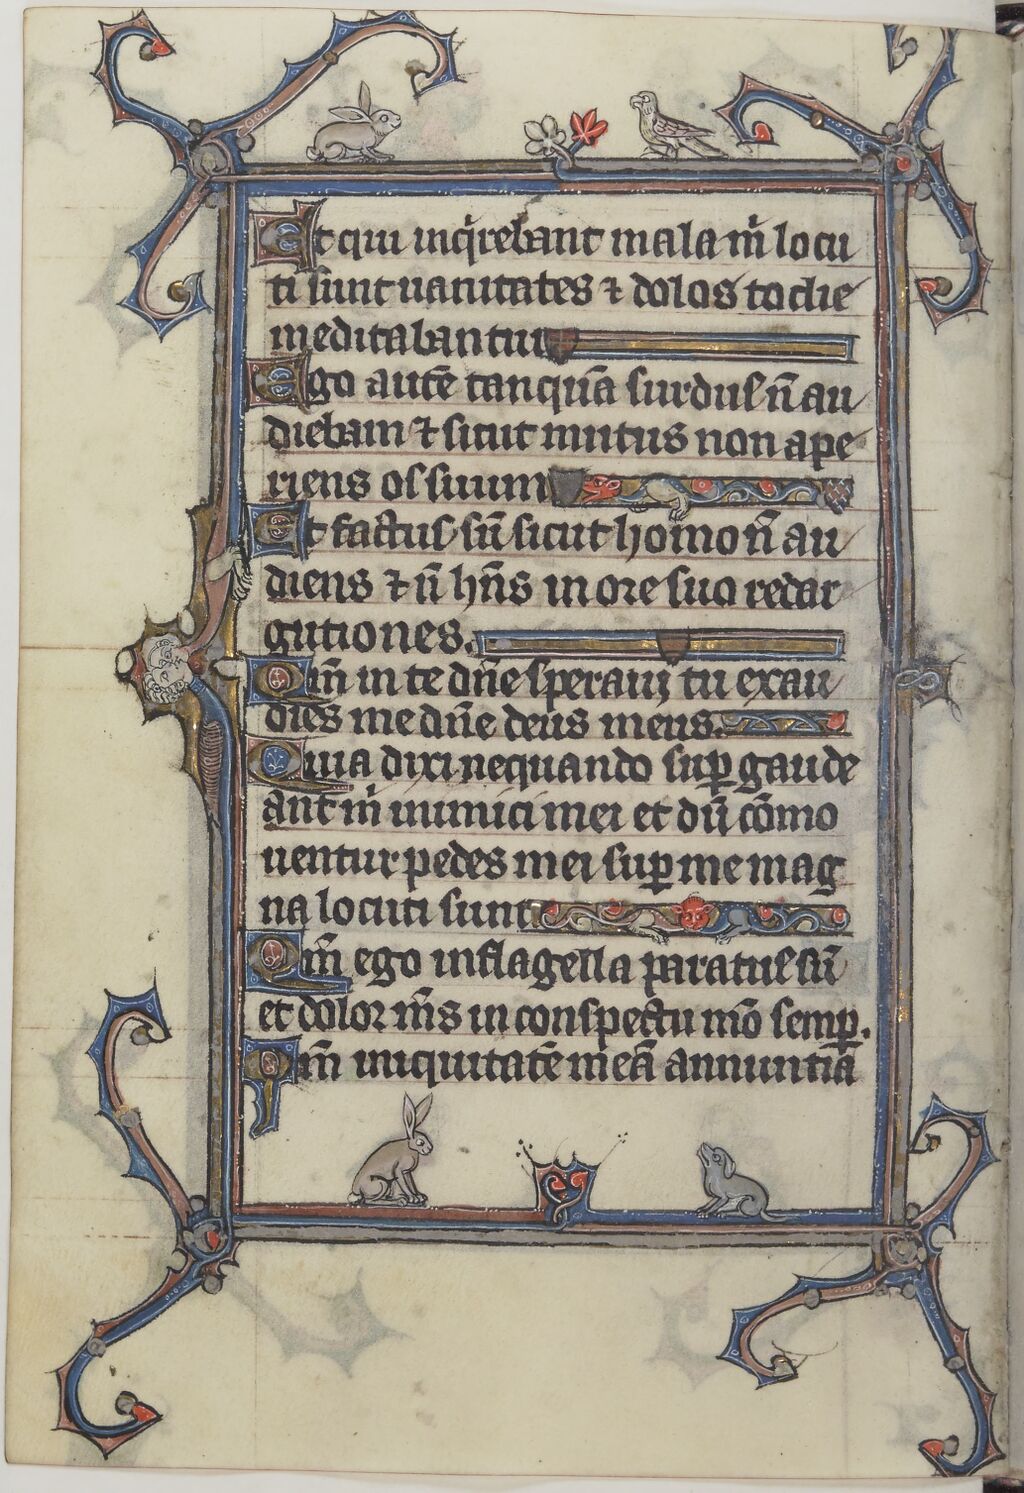 Et qui inq̇rebant mala m̄ locu
ti sunt uanitates ⁊ dolos todie
meditabantur
Ego autē tanquā surdus n̄ au
diebam ⁊ sicut mutus non ape
riens os suum
Et factus sū sicut homo n̄ au
diens ⁊ n̄ hn̄s in ore suo redar
gutiones.
Qm̄ in te dn̄e speraui tu exau
dies me dn̄e deus meus.
Quia dixi nequando suꝑ gaude
ant m̄ inimici mei et dū cōmo
uentur pedes mei suꝑ me mag
na locuti sunt
Qm̄ ego in flagella paratus sū
et dolor m̄s in conspectu mō semꝑ.
Qm̄ iniquitatē meā annuntia